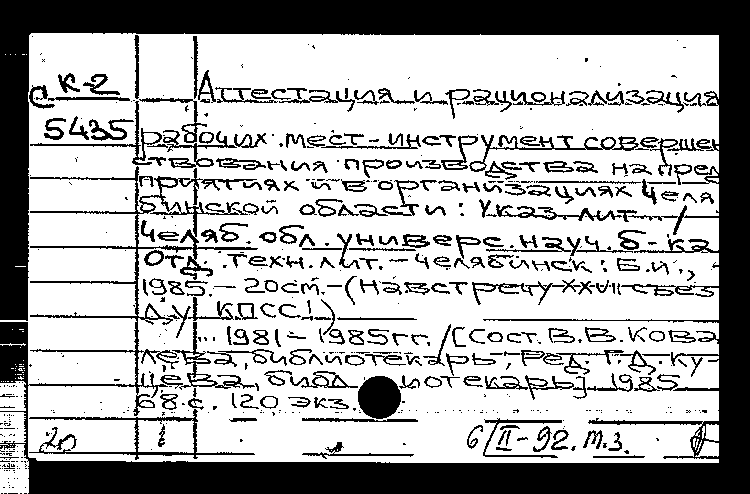 С К-2
Аттестация и рационализация
5435
рабочих мест-инструмент совершен
ствования производства на пред
приятиях и в организациях Челя
бинской области: Указ. лит... /
Челяб. обл. универс. науч. б-ка
Отд. техн. лит. - Челябинск: Б.и.,
1985. - 20см. - (Навстречу XXVII съез
ду КПСС!)
... 1981 - 1985гг. / [Сост. В.В. Кова
лева, библиотекарь; Ред. Г.Д. Ку-
цева, библиотекарь]. 1985
68 с. 120 экз.
20
6/II-92. т.з.